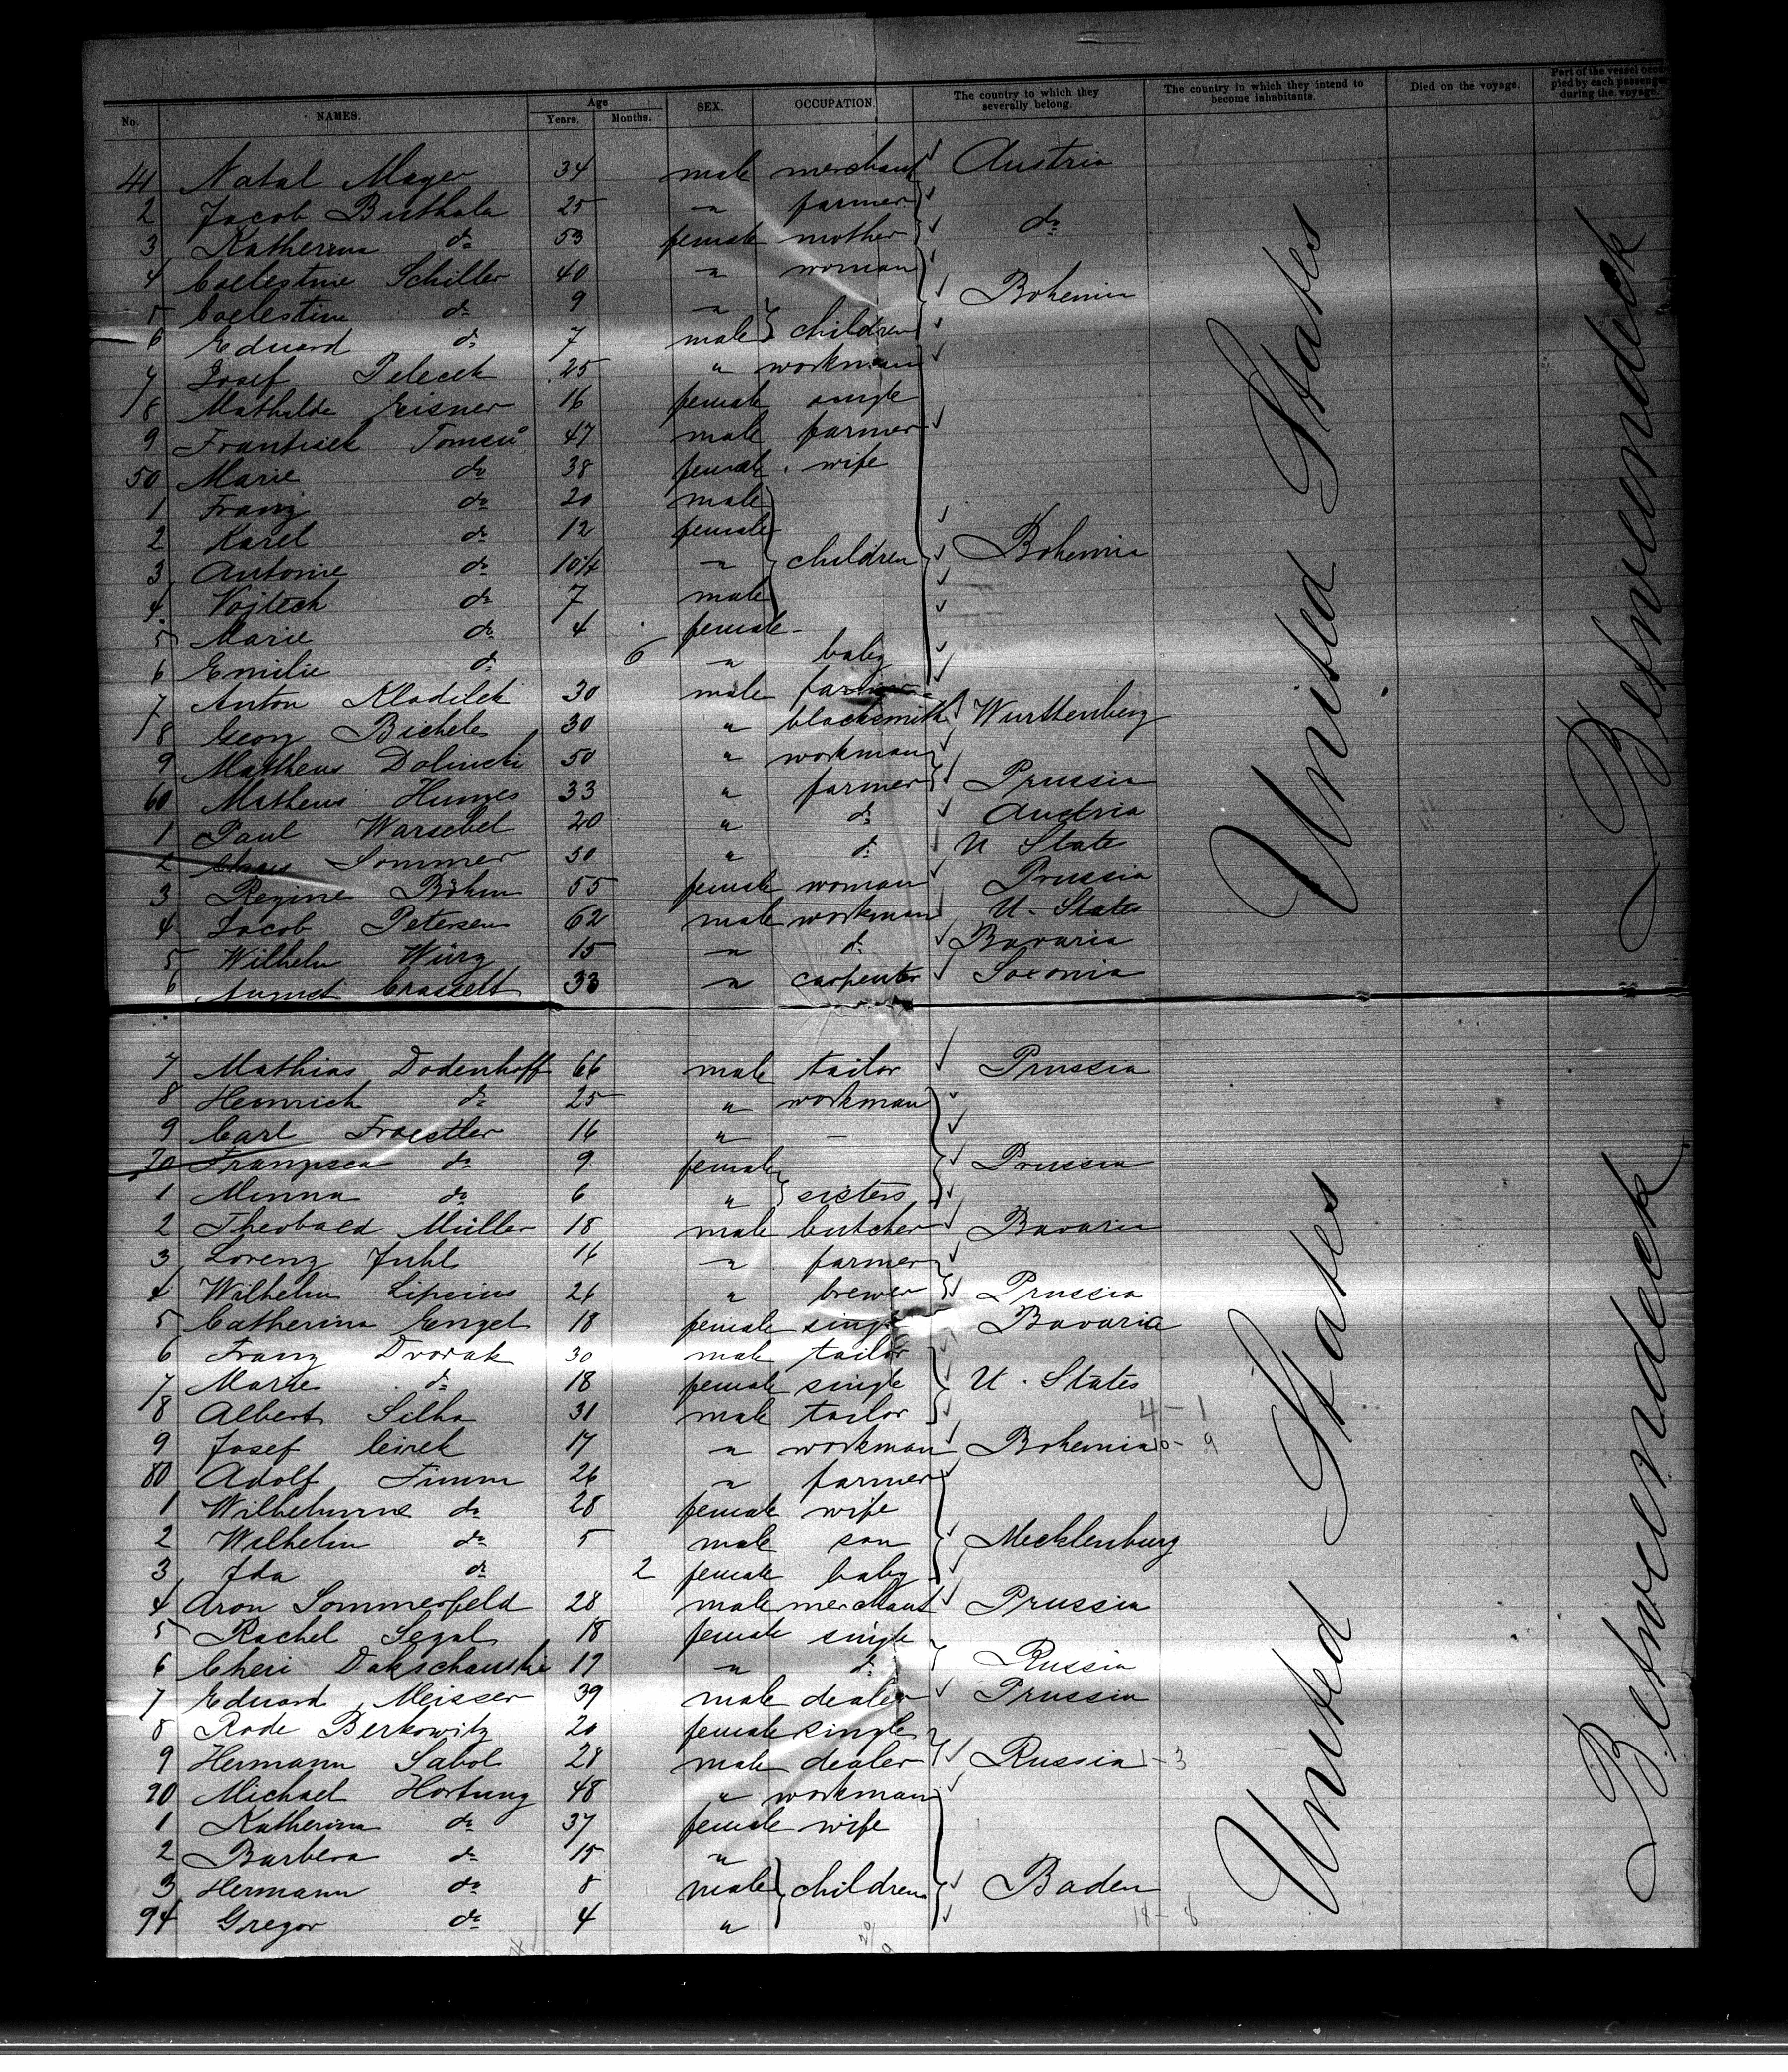 No. NAMES. Age Years. Months. SEX. OCCUPATION. The country to which they severally belong. The country in which they intend to become inhabitants. Died on the voyage. Part of the vessel occupied by each passenger during the voyage.
41 Natal Mayer 34 male merchant Austria
2 Jacob Buthala 25 " farmer
3 Katherina do 53 female mother do
4 Coelestine Schiller 40 " woman
5 Coelestine do 9 " Bohemia
6 Eduard do 7 male children
7 Josef Pelecek 25 " workman
8 Mathilde Eisner 16 female single
9 Frantisek Tomsů 47 male farmer
50 Marie do 38 female wife
1 Franz do 20 male
2 Karel do 12 female
3 Antonie do 10¼ " children Bohemia
4 Vojtech do 7 male
5 Marie do 4 female
6 Emilie do 6 " baby
7 Anton Kladilek 30 male farmer
8 Georg Bichele 30 " blacksmith Wurttenberg
9 Matheus Dolincki 50 " workman
60 Matheus Hunges 33 " farmer Prussia
1 Paul Warschel 20 " do Austria
2 Sommer 50 " do U State
3 Regine Böhm 55 female woman Prussia
4 Jacob Petersen 62 male workman U. States
5 Wilhelm Würz 15 " do Bavaria
6 August Crasselt 33 " carpenter Saxonia
United States
Betweendeck
7 Mathias Dodenhoff 66 male tailor Prussia
8 Heinrich do 25 " workman
9 Carl Froestler 16 " —
70 Franzisca do 9 female Prussia
1 Minna do 6 " sisters
2 Theobald Müller 18 male butcher Bavaria
3 Lorenz Juhl 16 " farmer
4 Wilhelm Lipsius 26 " brewer Prussia
5 Catherina Engel 18 female single Bavaria
6 Franz Dvorak 30 male tailor
7 Marie do 18 female single U. States
8 Albert Silha 31 male tailor 4 - 1
9 Josef Civrek 17 " workman Bohemia 10 - 9
80 Adolf Timm 26 " farmer
1 Wilhelmine do 28 female wife
2 Wilhelm do 5 male son Mecklenburg
3 Ida do 2 female baby
4 Aron Sommerfeld 28 male merchant Prussia
5 Rachel Segal 18 female single
6 Cheri Dakschauski 17 " do Russia
7 Eduard Meisser 39 male dealer Prussia
8 Rode Berkowitz 20 female single
9 Hermann Sabol 28 male dealer Russia 1 - 3
90 Michael Hartung 48 " workman
1 Katherina do 37 female wife
2 Barbera do 15 "
3 Hermann do 8 male children Baden
94 Gregor do 4 " 18 - 8
United States
Betweendeck